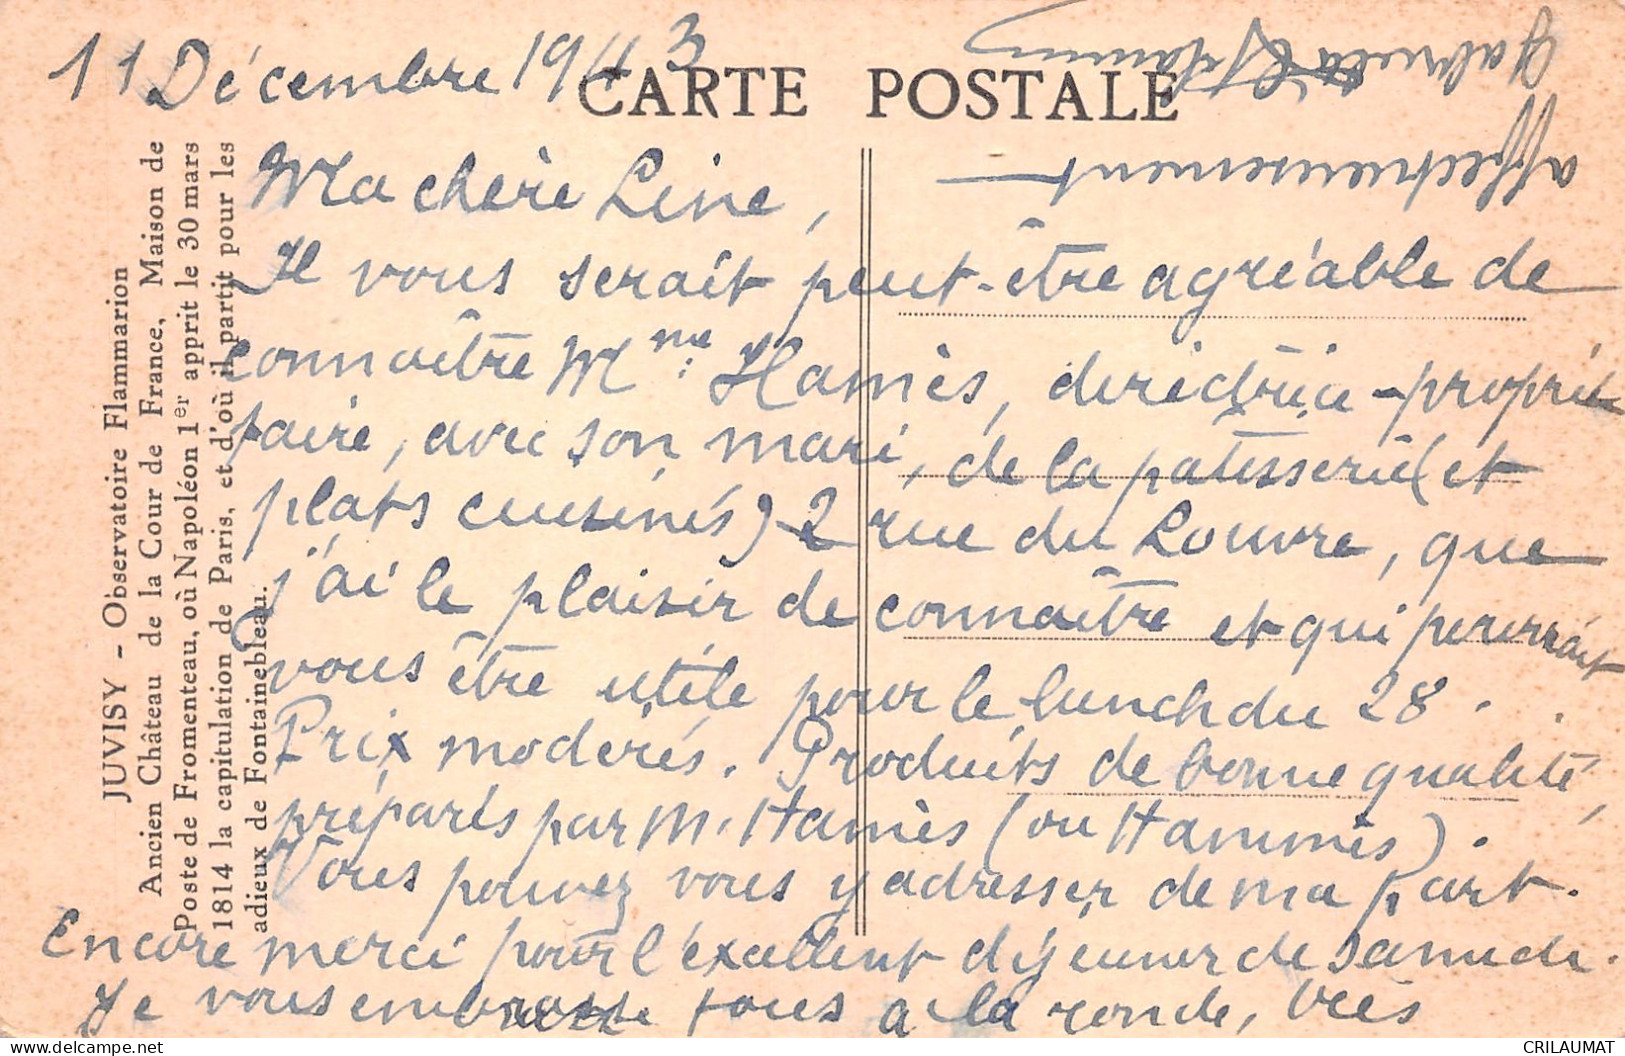 11 Décembre 1943
CARTE POSTALE
JUVISY - Observatoire Flammarion
Ancien Château de la Cour de France, Maison de
Poste de Fromenteau, où Napoléon 1er apprit le 30 mars
1814 la capitulation de Paris, et d'où il partit pour les
adieux de Fontainebleau.
Ma chère Line,
Il vous serait peut-être agréable de
connaître Mme Hamès, directrice-proprié
taire, avec son mari, de la pâtisserie (et
plats cuisinés) 2 rue du Louvre, que
j'ai le plaisir de connaître et qui pourrait
vous être utile pour le lunch du 28.
Prix modérés. Produits de bonne qualité,
préparés par M. Hamès (ou Hammès).
Vous pouvez vous y adresser de ma part.
Encore merci pour l'excellent déjeuner de samedi.
Je vous embrasse tous à la ronde, très
affectueusement
Gabrielle Flammarion
CRILAUMAT